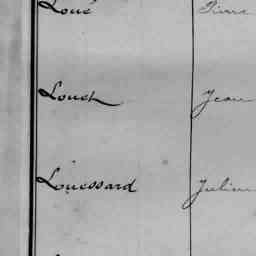 Loué Pierre
Louch Jean
Louessard Julien